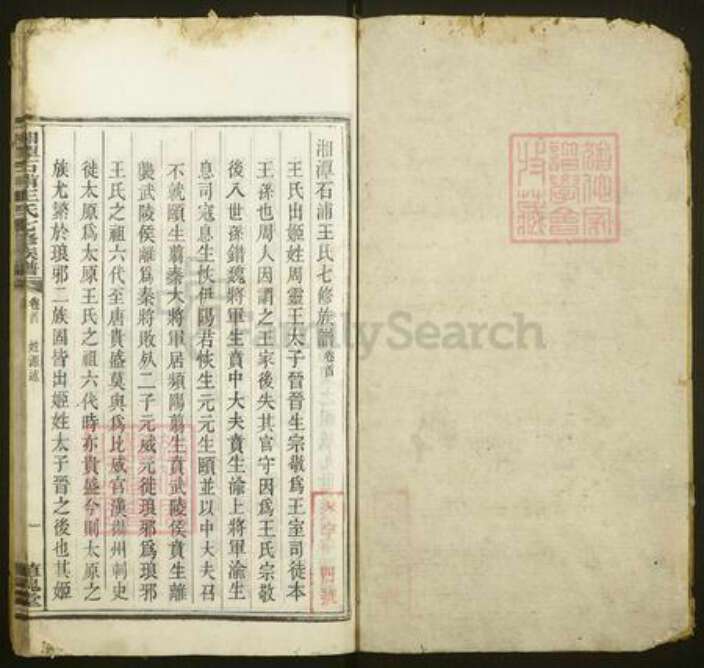 湘潭石浦王氏七修族譜卷首
王氏出姬姓周靈王太子晉晉生宗敬爲王室司徒本
王孫也周人因謂之王家後失其官守因爲王氏宗敬
後八世孫錯魏將軍生賁中大夫賁生渝上將軍渝生
息司寇息生恢伊陽君恢生元元生頤並以中大夫召
不就頤生翦秦大將軍居頻陽翦生賁武陵侯賁生離
襲武陵侯離爲秦將敗㱙二子元威元徙琅邪爲琅邪
王氏之祖六代至唐貴盛莫與爲比威官漢揚州刺史
徙太原爲太原王氏之祖六代時亦貴盛今則太原之
族尤繁於琅邪二族固皆出姬姓太子晉之後也其姬
湘潭石浦王氏七修族譜
卷首
姓源述
一
植槐堂
FamilySearch